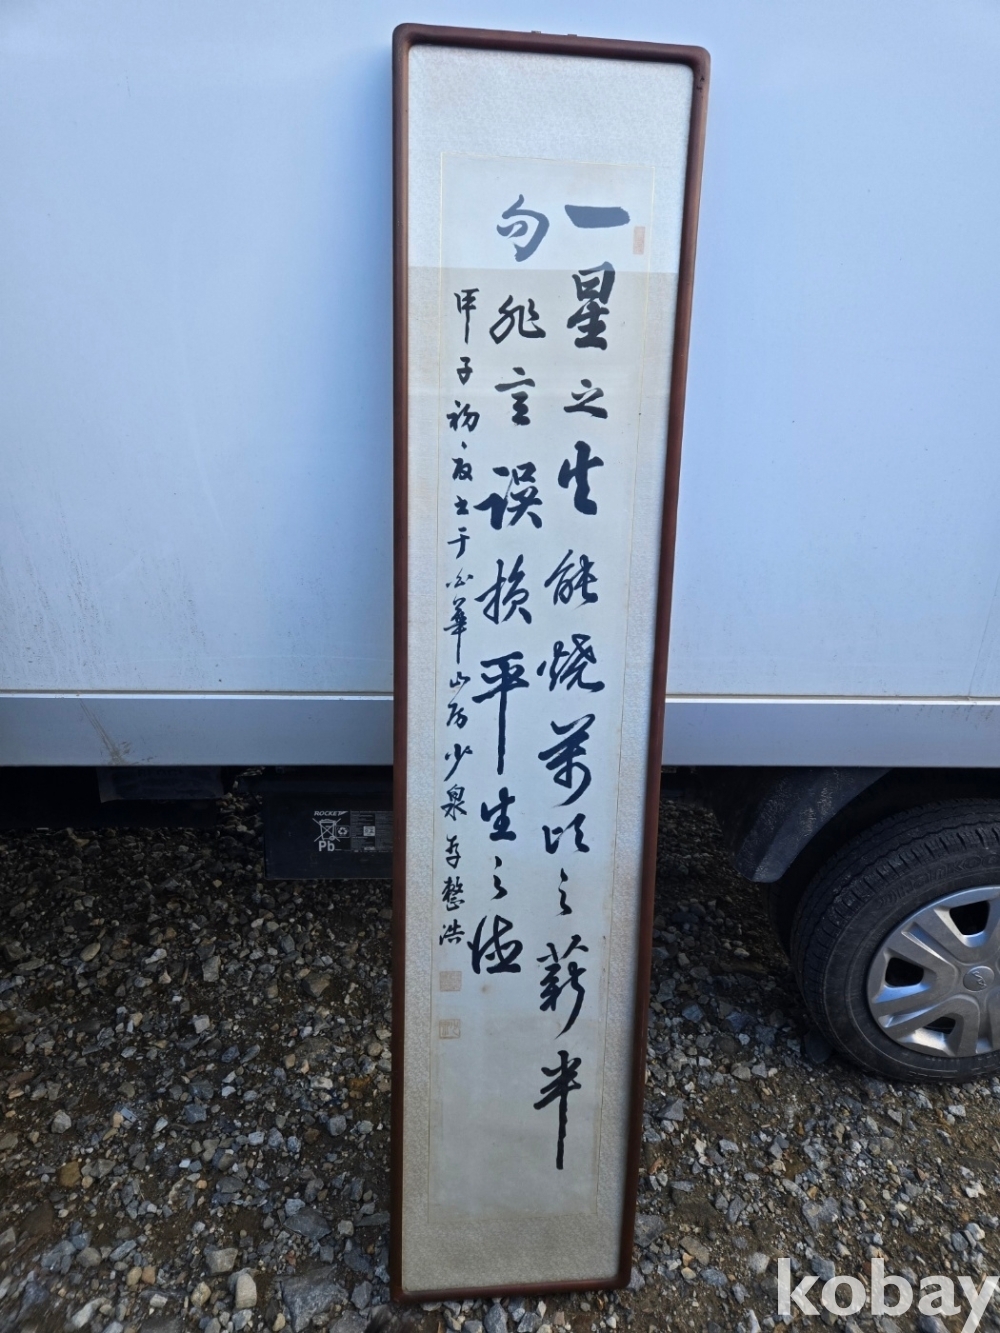 一星之火能燒萬頃之薪半
句非言誤損平生之德
甲子初夏書于華山房少泉整浩
ROCKET
Pb
kobay